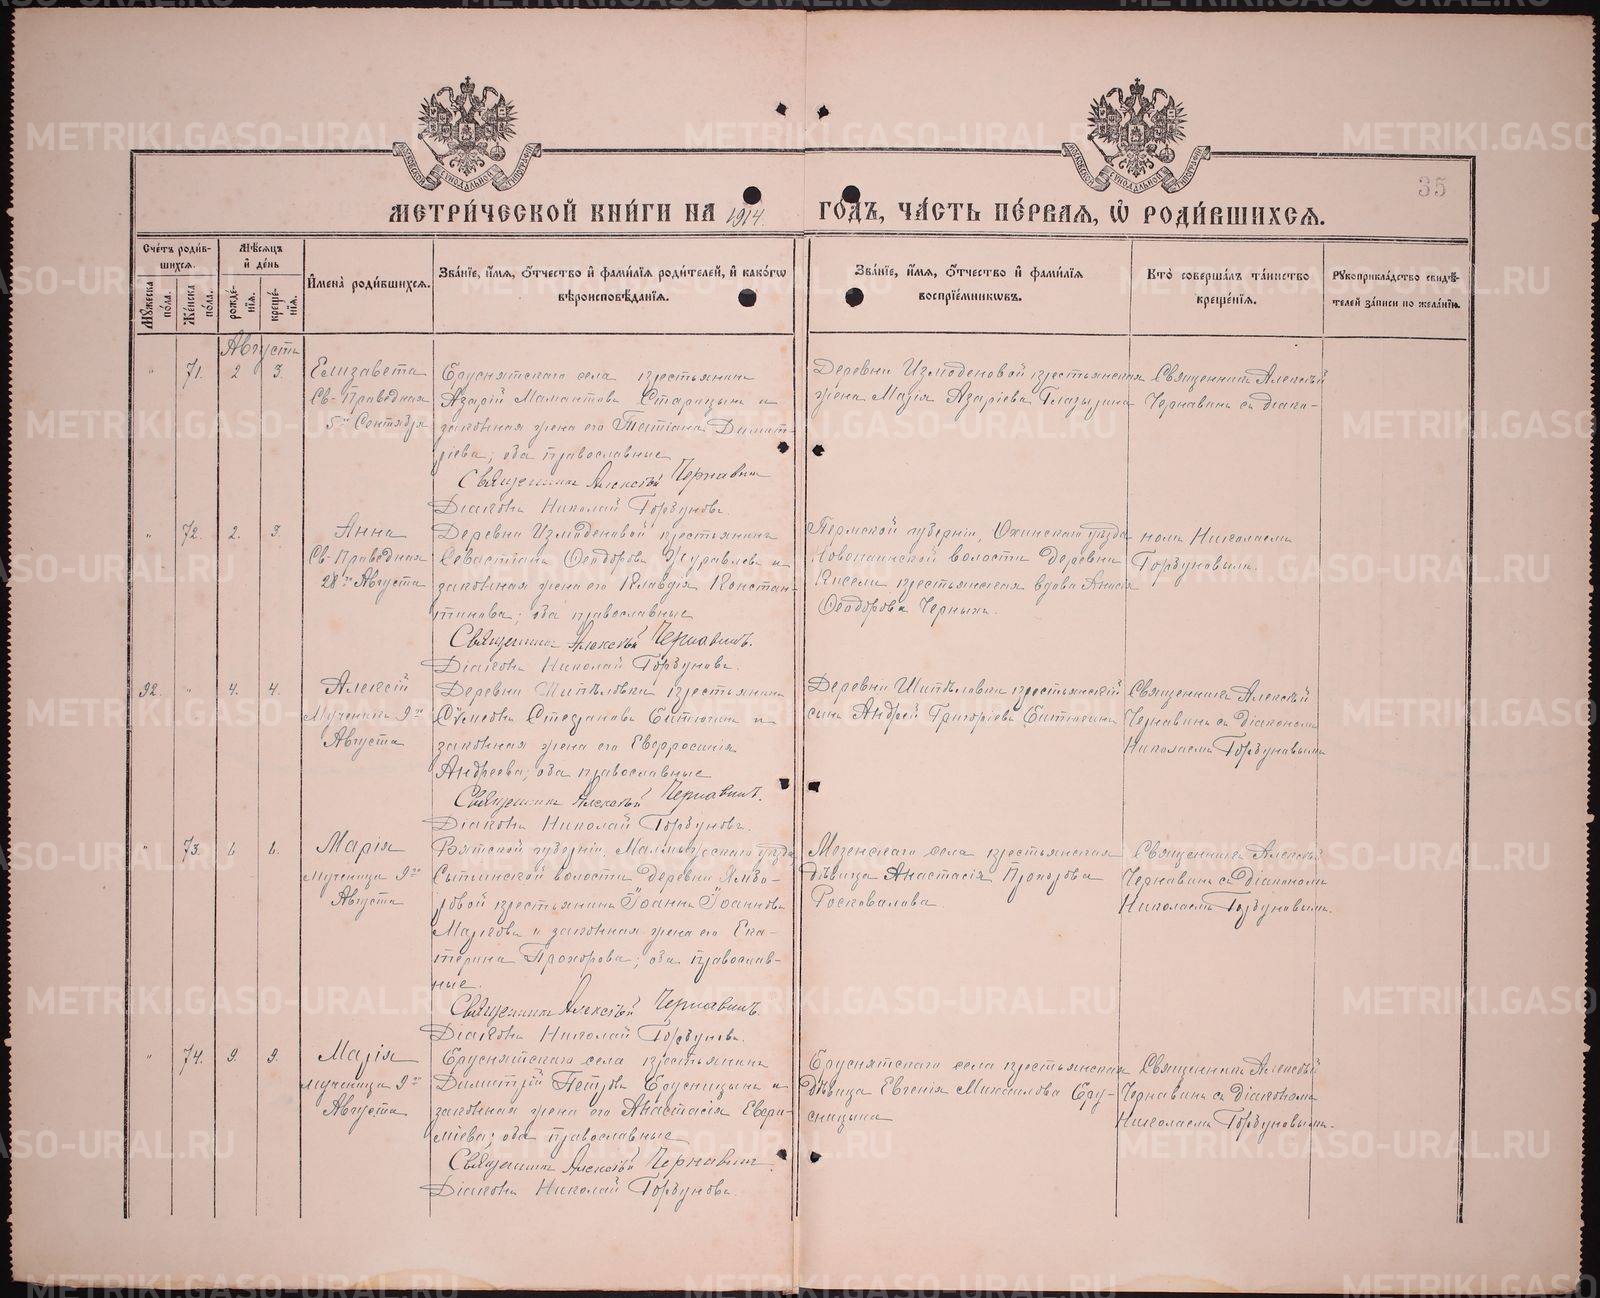 35
МЕТРИ́ЧЕСКОЙ КНИ́ГИ НА 1914 ГО́ДЪ, ЧА́СТЬ ПЕ́РВАЯ, Ѡ РОДИ́ВШИХСЯ.
Сче́тъ роди́вшихся.
Мꙋжеска по́ла.
Же́нска по́ла.
Мѣ́сяцъ и́ де́нь
рожде́нїя.
креще́нїя.
И҆мена̀ роди́вшихся.
Зва́нїе, и́мя, ѻ҆́тчество и҆ фами́лїя роди́телей, и҆ како́гѡ
вѣроисповѣ́данїя.
Зва́нїе, и́мя, ѻ҆́тчество и҆ фами́лїя
воспрїе́мникѡвъ.
Кто̀ соверша́лъ та́инство
креще́нїя.
Рꙋкоприкла́дство свидѣ́-
телей за́писи по жела́нїю.
Августа
" 71. 2 3.
Елизавета
Св. Праведная
5го Сентября
Бруснятскаго села крестьянинъ
Азарій Мамантовъ Старицынъ и
законная жена его Татіана Димит-
ріева; оба православные
Священникъ Алексѣй Чернавинъ
Діаконъ Николай Горбуновъ.
Деревни Измоденовой крестьянская
жена Марія Азаріева Глазырина
Священникъ Алексѣй
Чернавинъ съ діако-
" 72. 2. 3.
Анна
Св. Праведная
28го Августа
Деревни Измоденовой крестьянинъ
Севастіанъ Ѳеодоровъ Журавлевъ и
законная жена его Клавдія Констан-
тинова; оба православные
Священникъ Алексѣй Чернавинъ.
Діаконъ Николай Горбуновъ.
Пермской губерніи, Оханскаго уѣзда
Новопаинской волости деревни
Кисели крестьянская вдова
Ѳеодорова Черныхъ.
номъ Николаемъ
Горбуновымъ.
92. " 4. 4.
Алексій
Мученикъ 9го
Августа
Деревни Шипѣловки крестьянинъ
Сѵмеонъ Стефановъ Битюгинъ и
законная жена его Евфросинія
Андреева; оба православные
Священникъ Алексѣй Чернавинъ.
Діаконъ Николай Горбуновъ.
Деревни Шипѣловки крестьянскій
сынъ Андрей Григоріевъ Битюгинъ
Священникъ Алексѣй
Чернавинъ съ Діакономъ
Николаемъ Горбуновымъ
" 73. 6 6.
Марія
мученица 9го
Августа
Вятской губерніи, Малмыжскаго уѣзда
волости деревни
крестьянинъ Іоаннъ Іоанновъ
Марковъ и законная жена его Ека-
терина Прохорова; оба православ-
ные.
Священникъ Алексѣй Чернавинъ.
Діаконъ Николай Горбуновъ.
Мезенскаго села крестьянская
дѣвица Анастасія Прохорова
Росковалова.
Священникъ Алексѣй
Чернавинъ съ Діакономъ
Николаемъ Горбуновымъ.
" 74. 9. 9.
Марія
мученица 9го
Августа
Бруснятскаго села крестьянинъ
Димитрій Петровъ Брусницынъ и
законная жена его Анастасія Евфи-
міева; оба православные
Священникъ Алексѣй Чернавинъ.
Діаконъ Николай Горбуновъ.
Бруснятскаго села крестьянская
дѣвица Евгенія Михаилова Бру-
сницына
Священникъ Алексѣй
Чернавинъ съ Діакономъ
Николаемъ Горбуновымъ.
METRIKI.GASO-URAL.RU